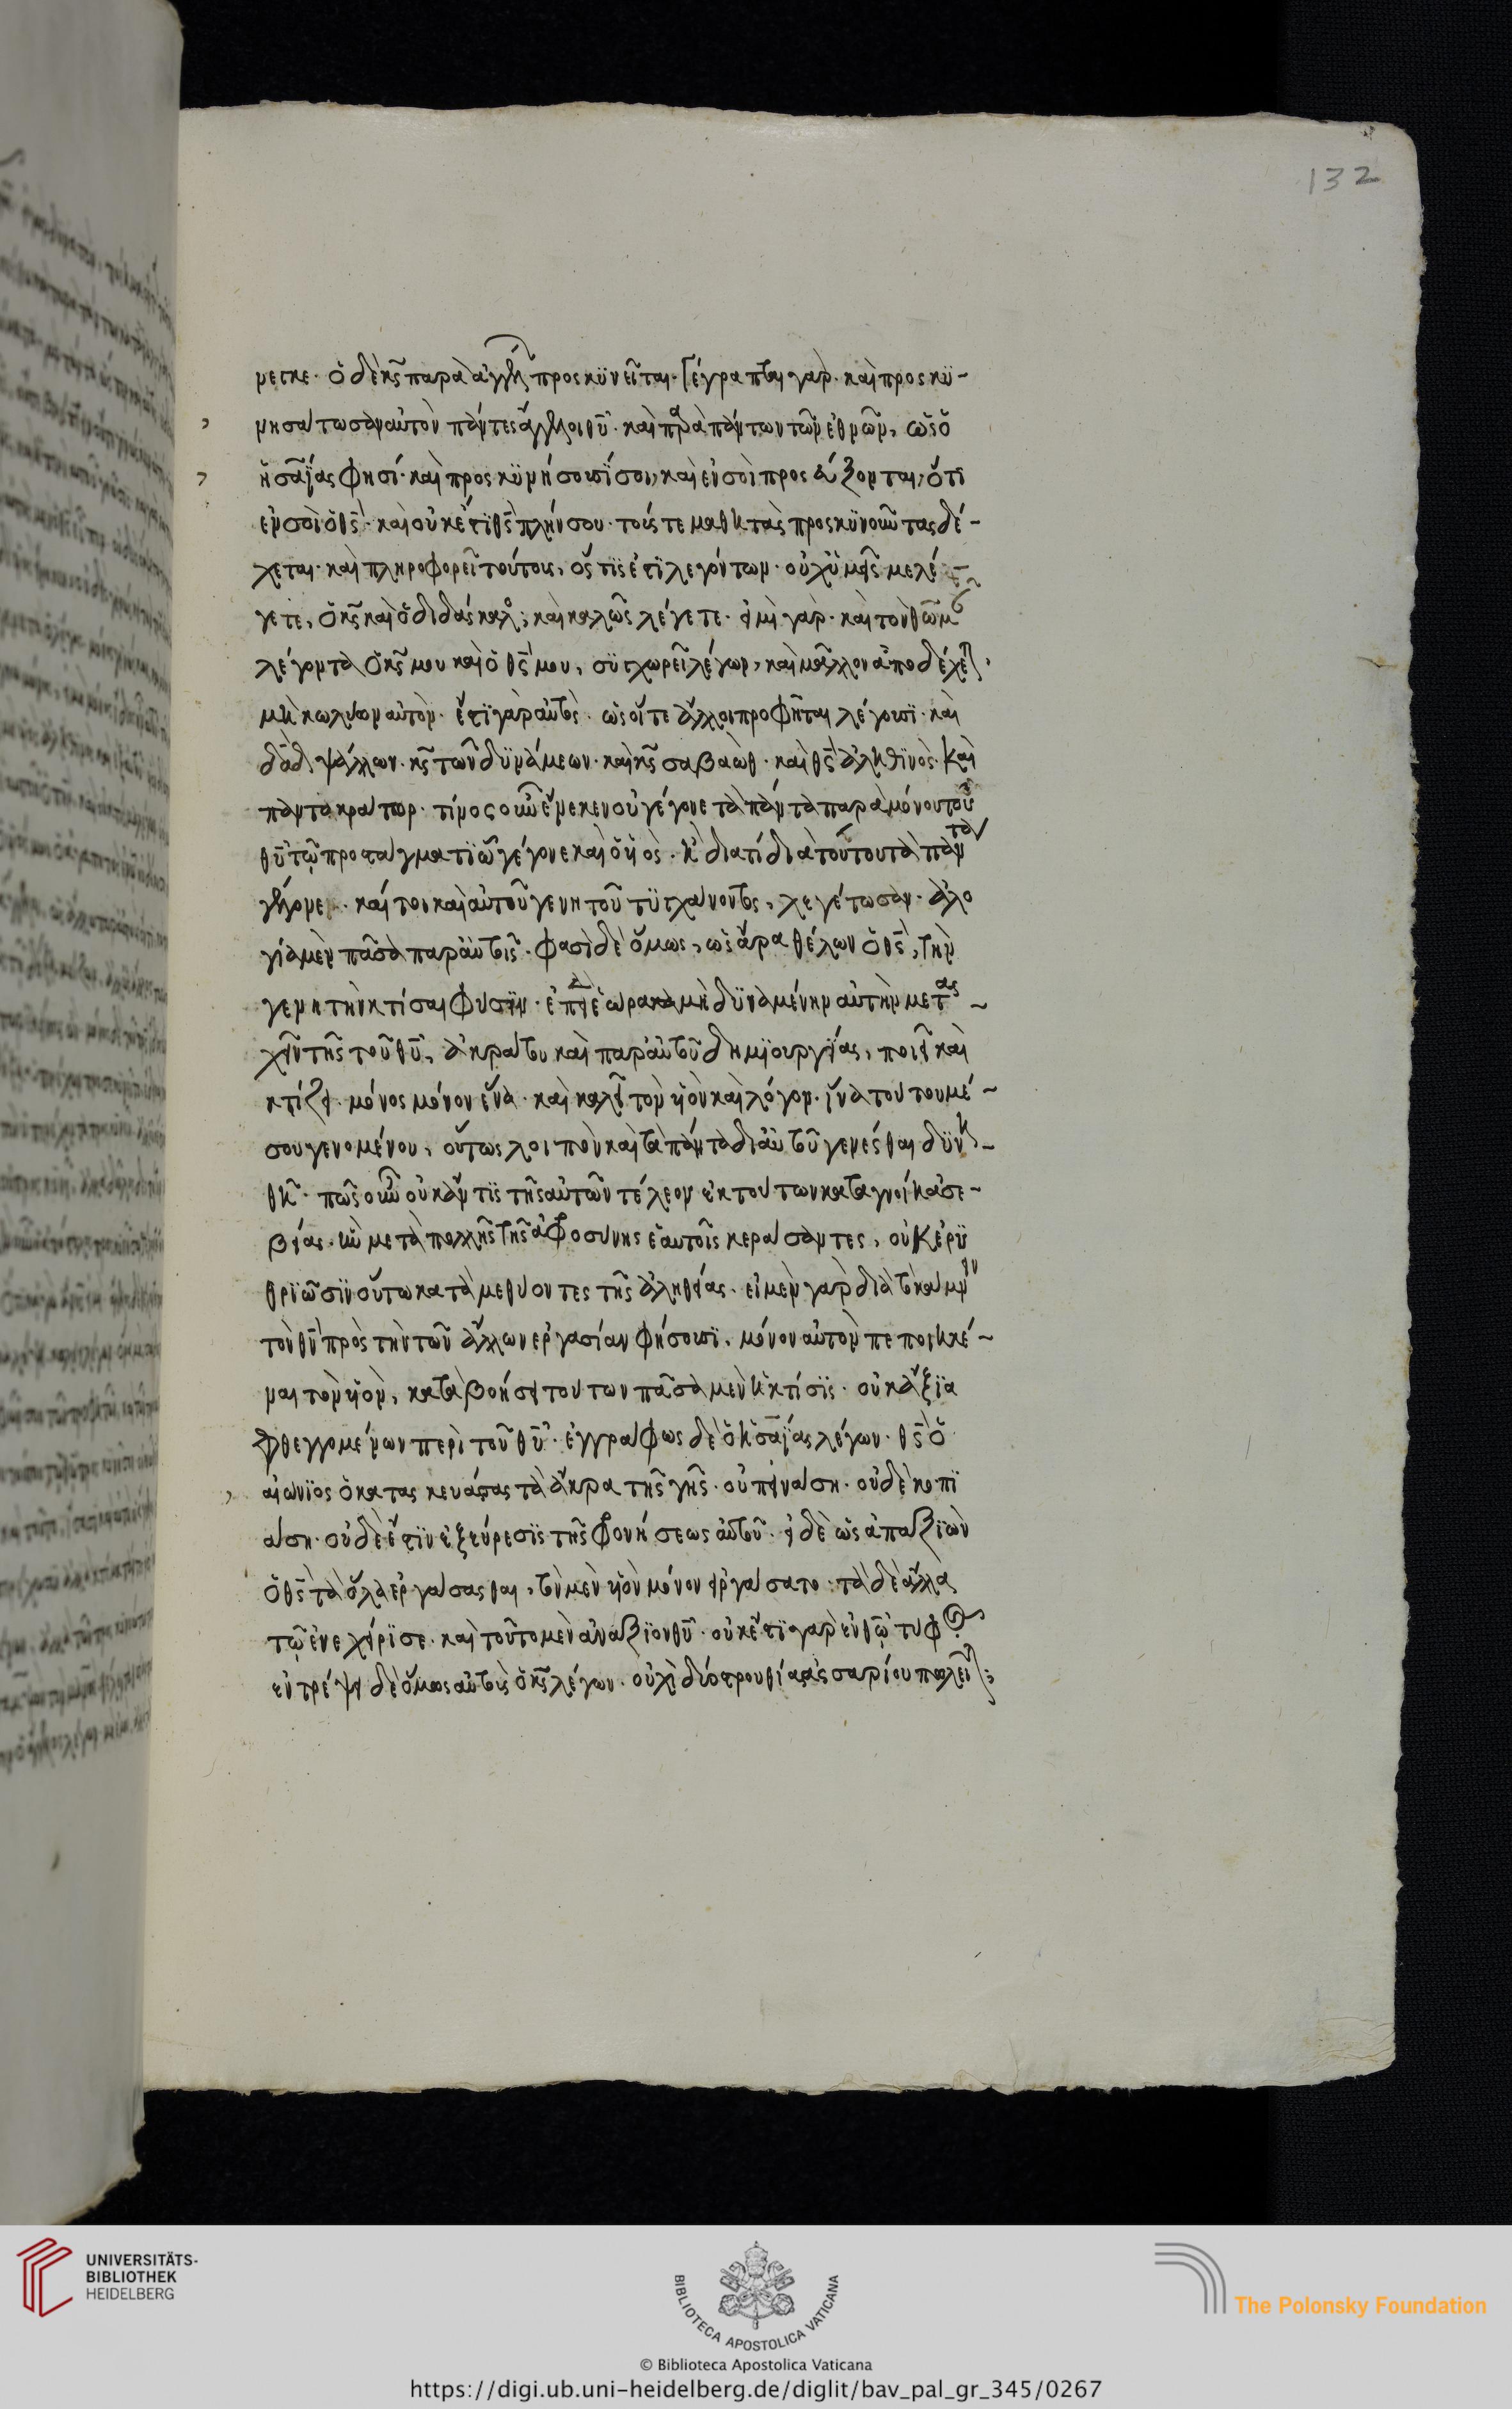 132
μεινε. ὁ δὲ κ̅ς̅ παρὰ ἀγγέλων προσκυνεῖται. Γέγραπται γάρ. καὶ προσκυ-
νησάτωσαν αὐτὸν πάντες ἄγγελοι θ̅υ̅. καὶ παρὰ πάντων τῶν ἐθνῶν, ὡς ὁ
ἡσαΐας φησί. καὶ προσκυνήσουσί σοι, καὶ ἐν σοὶ προσεύξονται, ὅτι
ἐν σοὶ ὁ θ̅ς̅. καὶ οὐκ ἔστι θ̅ς̅ πλήν σου. τούς τε μαθητὰς προσκυνοῦντας δέ-
χεται. καὶ πληροφορεῖ τούτους, ὅστις ἐστὶ λέγων. οὐχ ὑμεῖς με λέ-
γετε, ὁ κ̅ς̅ καὶ ὁ διδάσκαλος; καὶ καλῶς λέγετε. εἰμὶ γάρ. καὶ τὸν θωμᾶν
λέγοντα ὁ κ̅ς̅ μου καὶ ὁ θ̅ς̅ μου, συγχωρεῖ λέγων, καὶ μᾶλλον ἀποδέχεται,
μὴ κωλύων αὐτόν. ἔστι γὰρ αὐτὸς. ὡς οἵ τε ἄλλοι προφῆται λέγουσι. καὶ
δ̅α̅δ̅ ψάλλων. κ̅ς̅ τῶν δυνάμεων. καὶ κ̅ς̅ σαβαώθ. καὶ θ̅ς̅ ἀληθινὸς. καὶ
παντοκράτωρ. τίνος οὖν ἕνεκεν οὐ γέγονε τὰ πάντα παρὰ μόνου τοῦ
θ̅υ̅ τῷ προστάγματι ᾧ γέγονε καὶ ὁ υἱός. ἢ διατί διὰ τούτου τὰ πάντα
γέγονε. καίτοι καὶ αὐτοῦ γενητοῦ τυγχάνοντος, λεγέτωσαν. ἀλο
γία μὲν πᾶσα παρ' αὐτοῖς. φασὶ δὲ ὅμως, ὡς ἄρα θέλων ὁ θ̅ς̅, τὴν
γενητὴν κτίσαι φύσιν. ἐπειδὴ ἑώρακα μὴ δυναμένην αὐτὴν μετας-
χεῖν τῆς τοῦ θ̅υ̅, ἀκράτου καὶ παρ' αὐτοῦ δημιουργίας, ποιεῖ καὶ
κτίζει. μόνος μόνον ἕνα. καὶ καλεῖ τὸν υἱὸν καὶ λόγον. ἵνα τούτου μέ-
σου γενομένου, οὕτως λοιπὸν καὶ τὰ πάντα δι' αὐτοῦ γενέσθαι δυνη-
θῆ. πῶς οὖν οὐκ ἄν τις τῆς αὐτῶν τέλεον ἐκ τούτων καταγνοίη ἀσε-
βείας. ἣν μετὰ πολλῆς τῆς ἀφροσύνης ἑαυτοῖς κεράσαντες, οὐκ ἐρυ
θριῶσιν οὕτω καταμεθύοντες τῆς ἀληθείας. εἰ μὲν γὰρ διὰ τὸ κάμνειν
τὸν θ̅ν̅ πρὸς τὴν τῶν ἄλλων ἐργασίαν φήσουσι, μόνον αὐτὸν πεποιηκέ-
ναι τὸν υἱόν, καταβοήσει τούτων πᾶσα μὲν ἡ κτίσις. οὐκ ἄξια
φθεγγομένων περὶ τοῦ θ̅υ̅. ἐγγράφως δὲ ὁ ἡσαΐας λέγων. θ̅ς̅ ὁ
αἰώνιος ὁ κατασκευάσας τὰ ἄκρα τῆς γῆς. οὐ πεινάσει. οὐδὲ κοπι
άσει. οὐδὲ ἔστιν ἐξεύρεσις τῆς φρονήσεως αὐτοῦ. εἰ δὲ ὡς ἀπαξιῶν
ὁ θ̅ς̅ τὰ ὅλα ἐργάσασθαι, τὸν μὲν υἱὸν μόνον εἰργάσατο. τὰ δὲ ἄλλα
τῷ ἐνεχείρισε. καὶ τοῦτο μὲν ἀνάξιον θ̅υ̅. οὐκ ἔστι γὰρ ἐν θ̅ω̅ τύφος
ἐντρέψει δὲ ὅμως αὐτοὺς ὁ κ̅ς̅ λέγων. οὐχὶ δύο στρουθία ἀσσαρίου πωλεῖται;
UNIVERSITÄTS-
BIBLIOTHEK
HEIDELBERG
BIBLIOTECA APOSTOLICA VATICANA
The Polonsky Foundation
© Biblioteca Apostolica Vaticana
https://digi.ub.uni-heidelberg.de/diglit/bav_pal_gr_345/0267